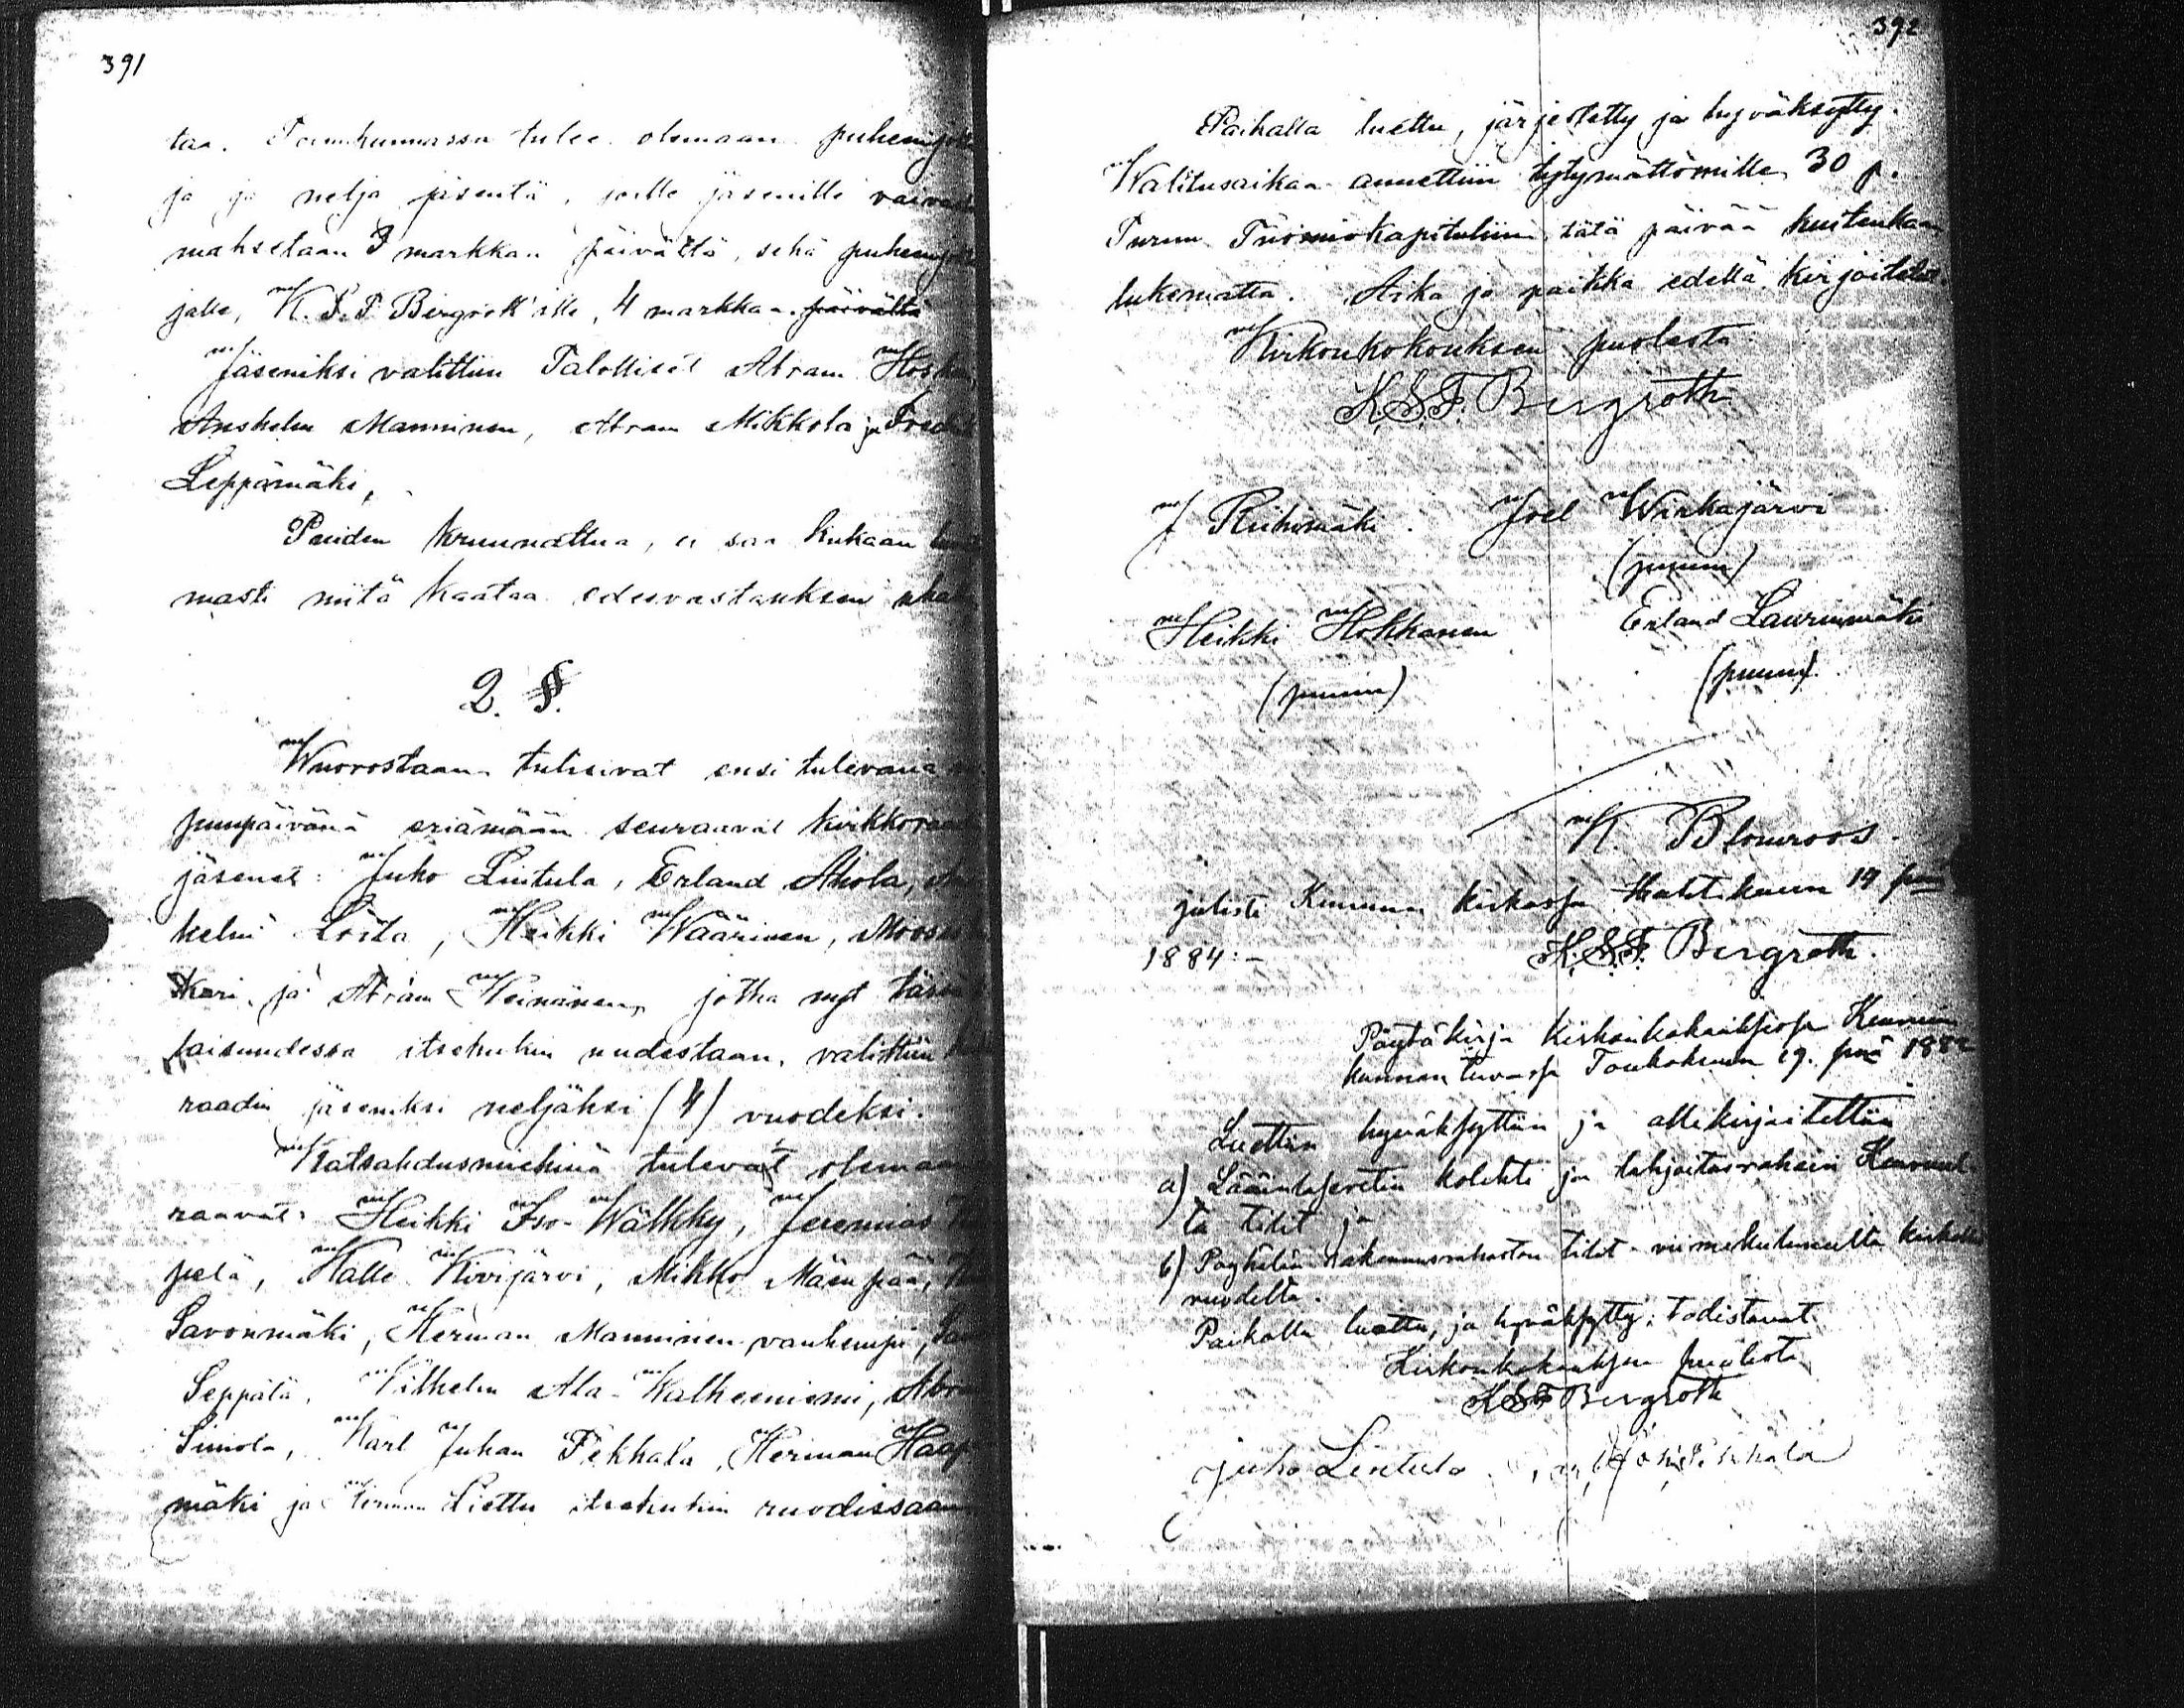 391
taa. Toimikunnassa tulee olemaan puheenjoh
ja ja neljä jäsentä, joille jäsenille
mahsetaan 3 markkaa päivältä, sekä puheenjoh
jalle, K. S. F. Bergroth'ille, 4 markkaa päivältä
Jäseniksi valittiin Talolliset Abram
Anshelm Manninen, Abram Mikkola ja Fredrik
Leppämäki,
Puiden kruunattua, ei saa kukaan
masti niitä kaataa edesvastauksen uhalla
2. §.
Wuorostaan tulisivat ensi tulevana
puupäivänä eriämään seuraavat kirkkoraad
jäsenet: Juho Lintula, Erland Ahola, An
helm Löita, Heikki Wäärinen, Moses
Kari ja Abram Heinänen, jotka nyt täsi
laisuudessa itsekukin uudestaan, valittiin
raadin jäseniksi neljäksi (4) vuodeksi.
Katsahdusmiehinä tulevat olemaan
raavat: Heikki Iso-Wälkky, Jeremias
pelä, Kalle Kivijärvi, Mikko Mäenpää,
Savonmäki, Herman Manninen vanhempi,
Seppälä, Vilhelm Ala-Walkeeniemi, Abra
Simola, Karl Juhan Pekkala, Herman Haap
mäki ja Herman Liettu itsekukin ruodissaan
392
Paikalla luettu, järjestetty ja hyväksytty.
Walitusaikaa annettiin tytymättömille 30 p.
Turun Tuomiokapituliin tätä päivää kuitenkaan
lukematta. Aika ja paikka edellä kirjoitetut.
Kirkonkokouksen puolesta
K.S.F. Bergroth
J Riihimäki. Joel Wirkajärvi
(puum)
Heikki Hokkanen Erland Laurinmäki
(puum) (puum).
K. Blomroos.
julisti Keuruun kirkossa Huhtikuun 14 pnä
1884:- K.S.F. Bergroth.
Pöytäkirja kirkonkokouksessa Keuruun
kunnan tuvassa Toukokuun 19. pnä 188
Luettiin hyväksyttiin ja allekirjoitettiin
a) Lääninlasaretin kolehti ja lahjoitusrahain
ta tilit ja
b) Pöyhölän rakennusrahaston tilit viimekuluneelta kirkollis
vuodelta.
Paikalla luettu, ja hyväksytty; todistavat
Kirkonkokouksen puolesta
K.S.F Bergroth
Juho Lintula